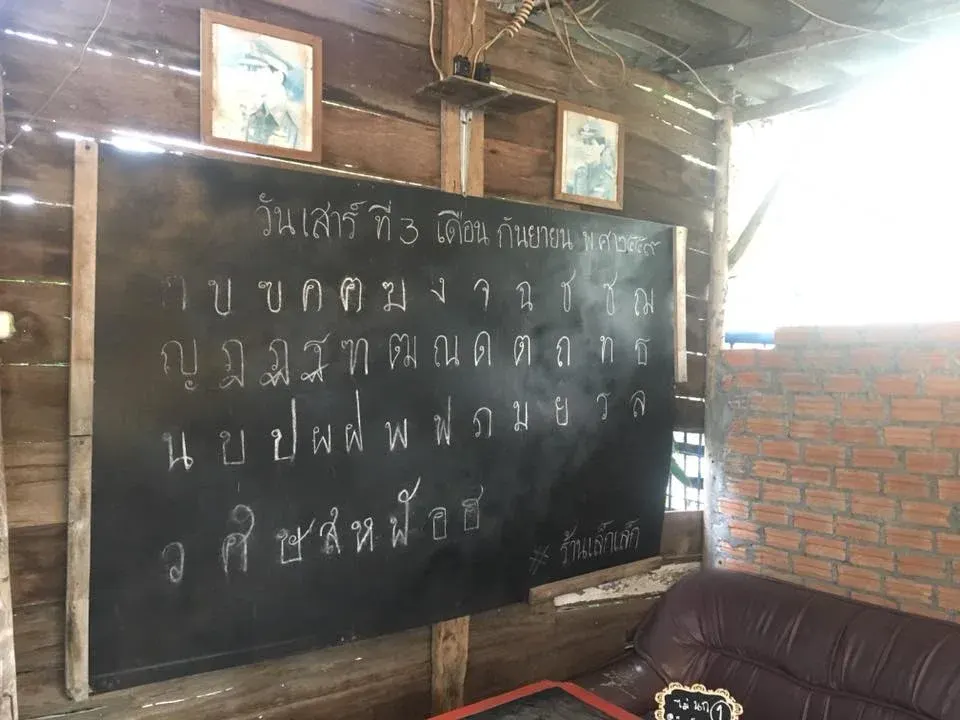 วันเสาร์ ที่ 3 เดือน กันยายน พศ๒๕๕๙
ก ข ฃ ค ฅ ฆ ง จ ฉ ช ซ ฌ
ญ ฎ ฏ ฐ ฑ ฒ ณ ด ต ถ ท ธ
น บ ป ผ ฝ พ ฟ ภ ม ย ร ล
ว ศ ษ ส ห ฬ อ ฮ
* ร้านเล็กเล็ก
ไม่ นก 1